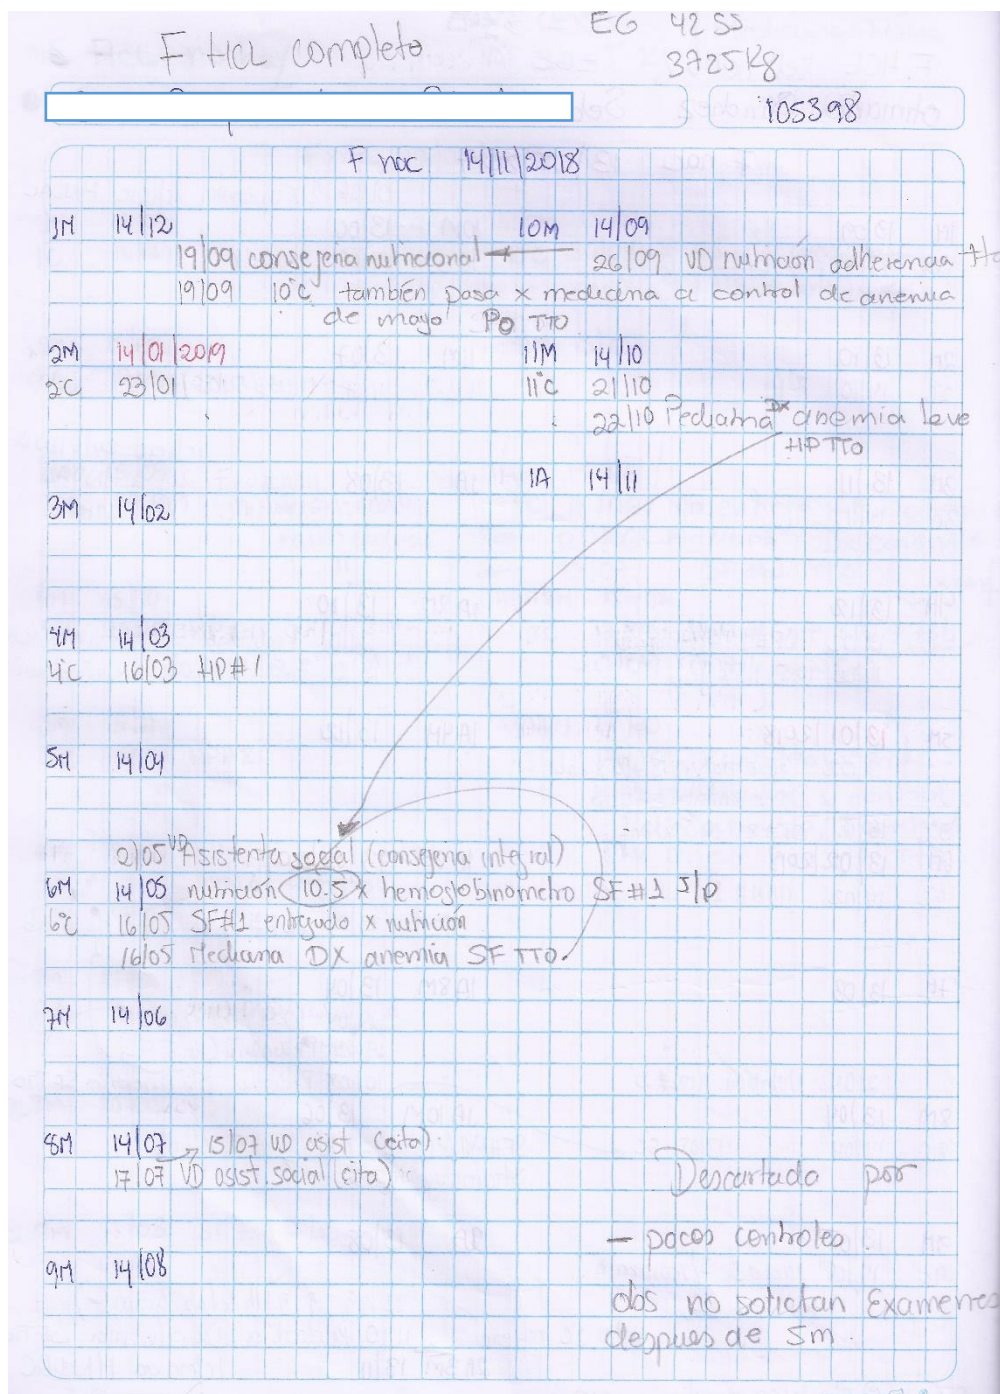 EG 42 SS
F HCL completo
3725 Kg
105398
F nac 14/11/2018
1M 14/12 10M 14/09
19/09 consejeria nutricional 26/09 VD nutrición adherencia
19/09 10°C también pasa x medicina a control de anemia
de mayo PO TTO
2M 14/01/2019 11M 14/10
2°C 23/01 11°C 21/10
22/10 Pediatria DX anemia leve
HP TTO
1A 14/11
3M 14/02
4M 14/03
4°C 16/03 HP#1
5M 14/04
2/05 VD Asistenta social (consejeria integral)
6M 14/05 nutrición 10.5 x hemoglobinometro SF #1 S/P
6°C 16/05 SF#1 entregado x nutrición
16/05 Medicina DX anemia SF TTO.
7M 14/06
8M 14/07 15/07 VD asist (cita)
17/07 VD asist. social (cita)
Descartado por
- pocos controles.
9M 14/08
obs no solictan Examenes
despues de 5m.